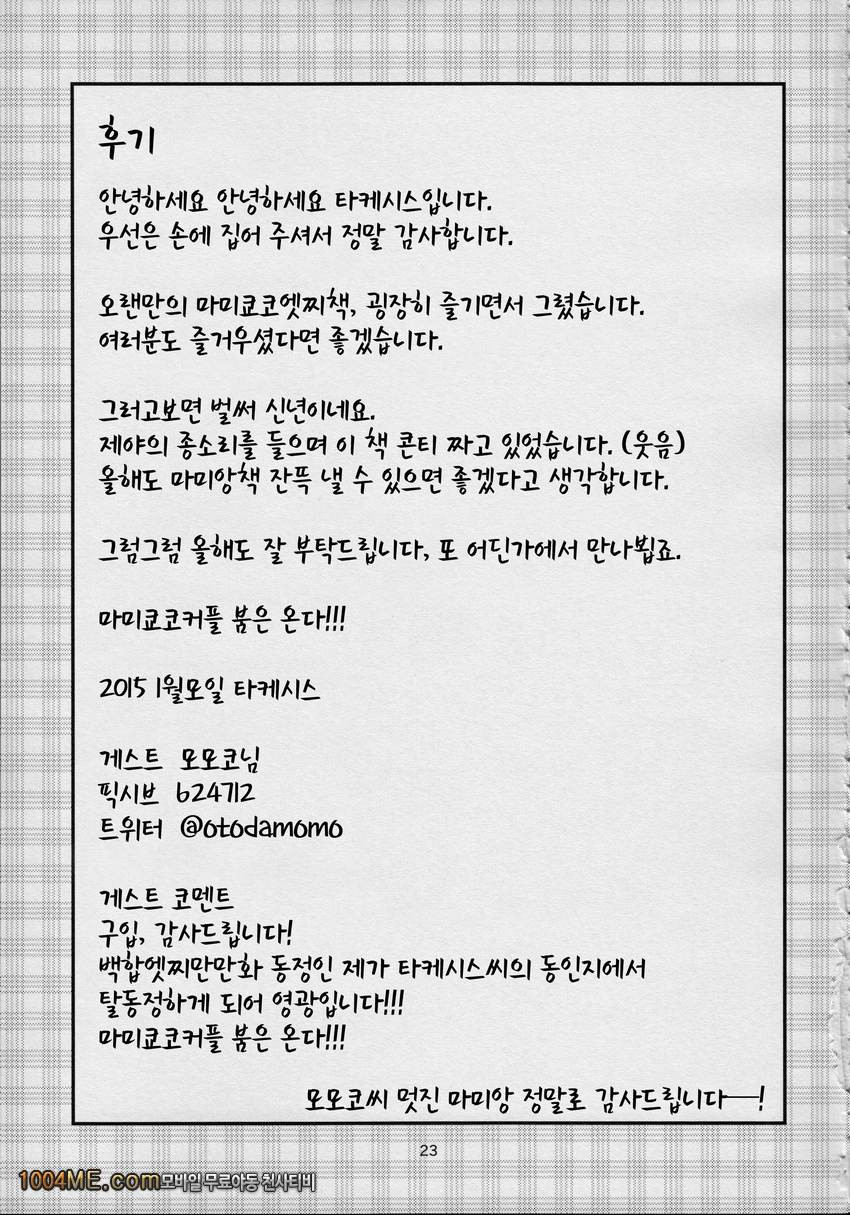 후기
안녕하세요 안녕하세요 타케시스입니다.
우선은 손에 집어 주셔서 정말 감사합니다.
오랜만의 마미쿄코엣찌책, 굉장히 즐기면서 그렸습니다.
여러분도 즐거우셨다면 좋겠습니다.
그러고보면 벌써 신년이네요.
제야의 종소리를 들으며 이 책 콘티 짜고 있었습니다. (웃음)
올해도 마미앙책 잔뜩 낼 수 있으면 좋겠다고 생각합니다.
그럼그럼 올해도 잘 부탁드립니다, 또 어딘가에서 만나뵙죠.
마미쿄코커플 붐은 온다!!!
2015 1월모일 타케시스
게스트 모모코님
픽시브 624712
트위터 @otodamomo
게스트 코멘트
구입, 감사드립니다!
백합엣찌만만화 동정인 제가 타케시스씨의 동인지에서
탈동정하게 되어 영광입니다!!!
마미쿄코커플 붐은 온다!!!
모모코씨 멋진 마미앙 정말로 감사드립니다──!
23
1004ME.com모바일무료야동 천사티비